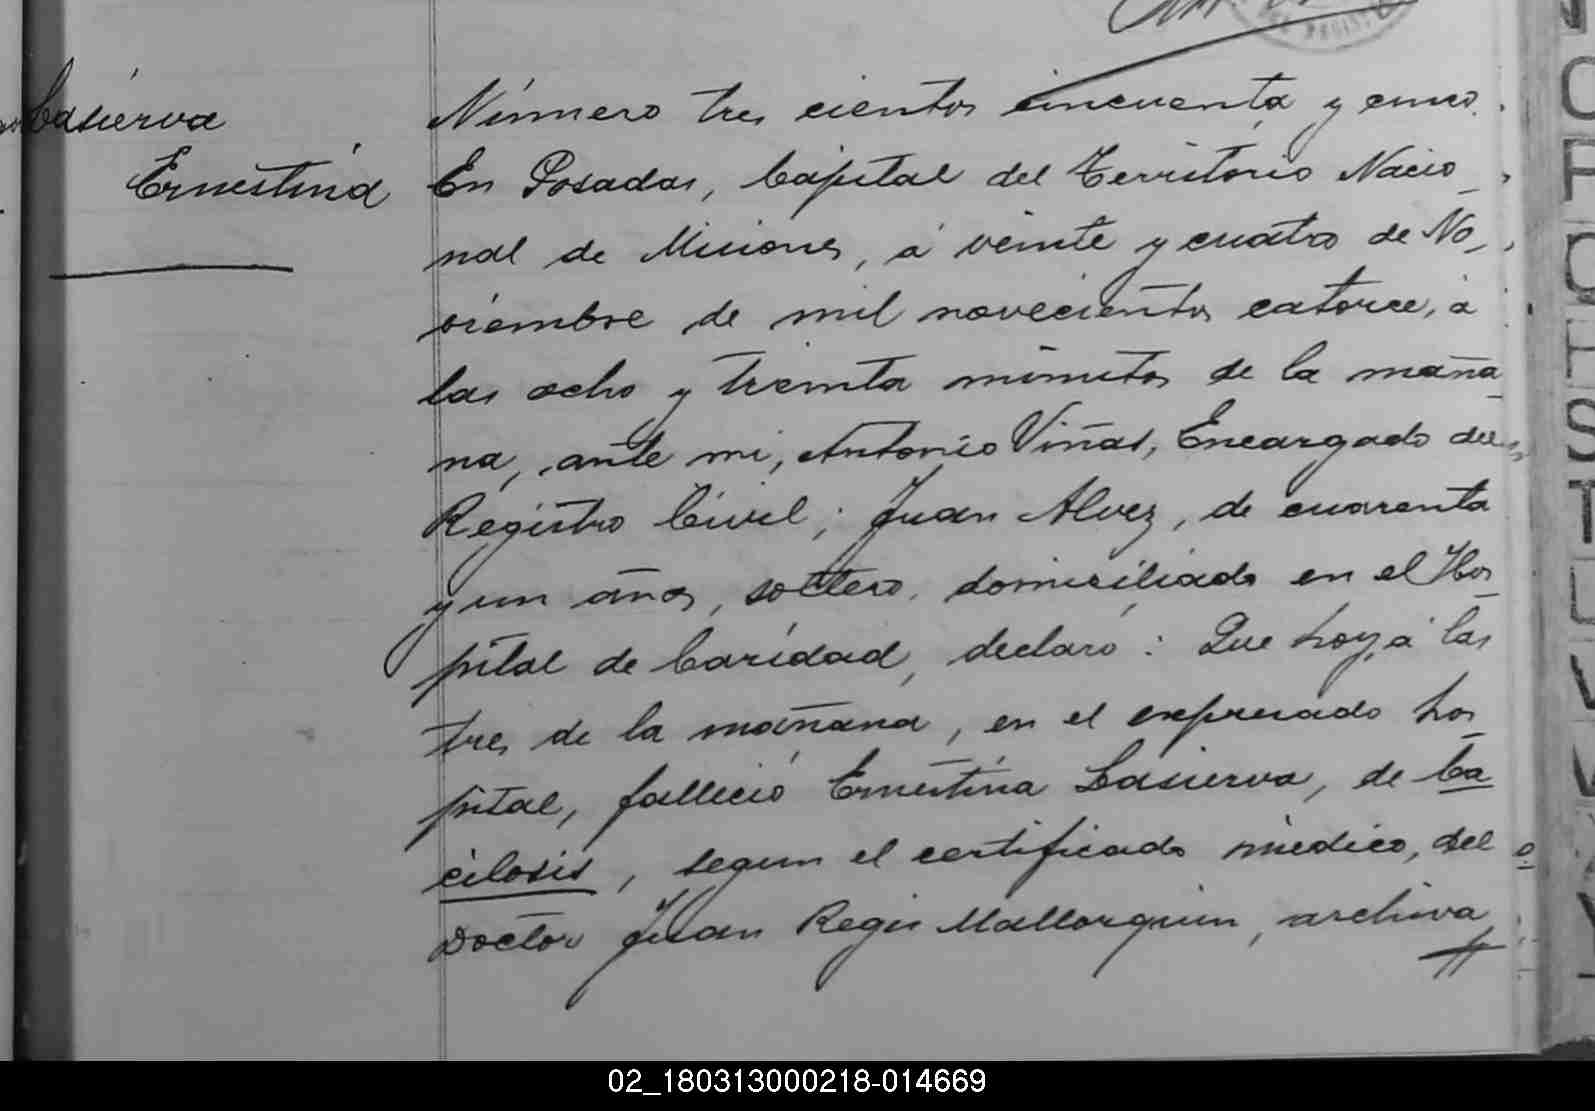 Lasierva
Ernestina
Número tres cientos cincuenta y cinco.
En Posadas, Capital del Territorio Nacio_
nal de Misiones, á veinte y cuatro de No_
viembre de mil novecientos catorce, á
las ocho y treinta minutos de la maña_
na, ante mi, Antonio Viñas, Encargado del
Registro Civil; Juan Alvez, de cuarenta
y un años, soltero, domiciliado en el Hos_
pital de Caridad, declaró: Que hoy, á las
tres de la mañana, en el expresado hos_
pital, falleció Ernestina Lasierva, de ba
cilosis, segun el certificado médico, del
Doctor Juan Regis Mallorquin, archiva_
02_180313000218-014669